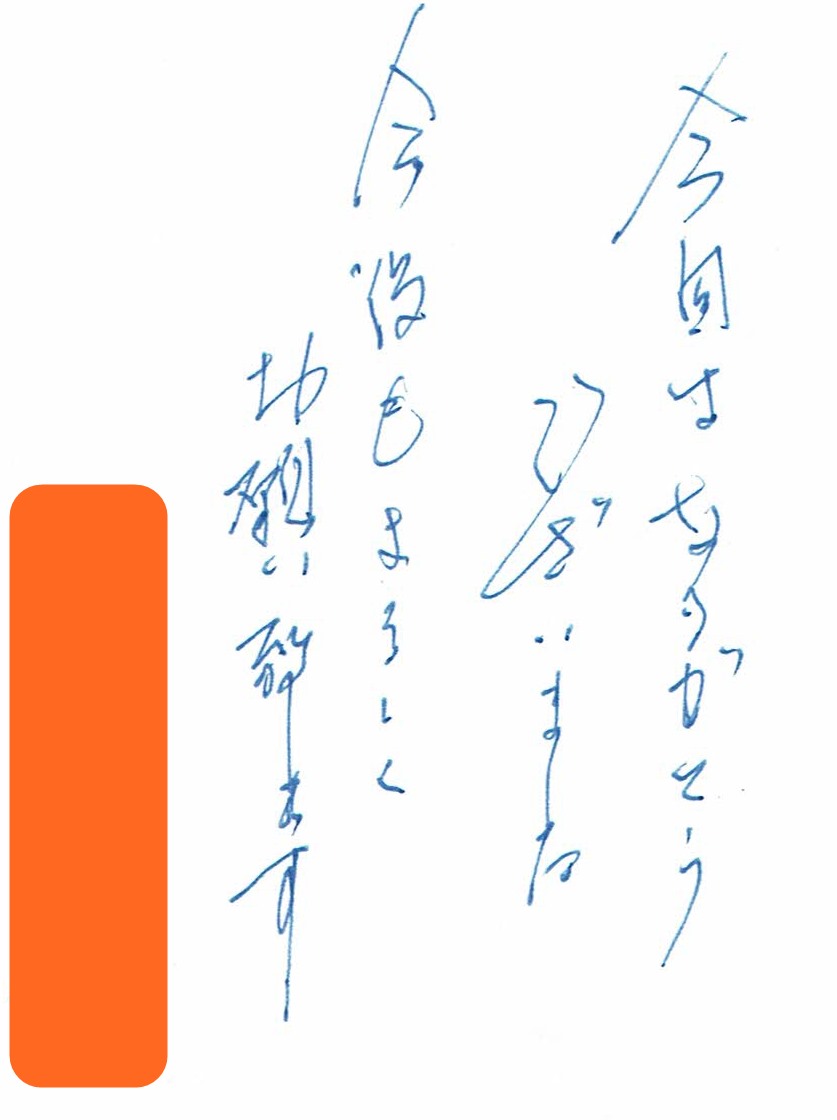 今回はありがとう
ございました
今後もよろしく
お願い致します